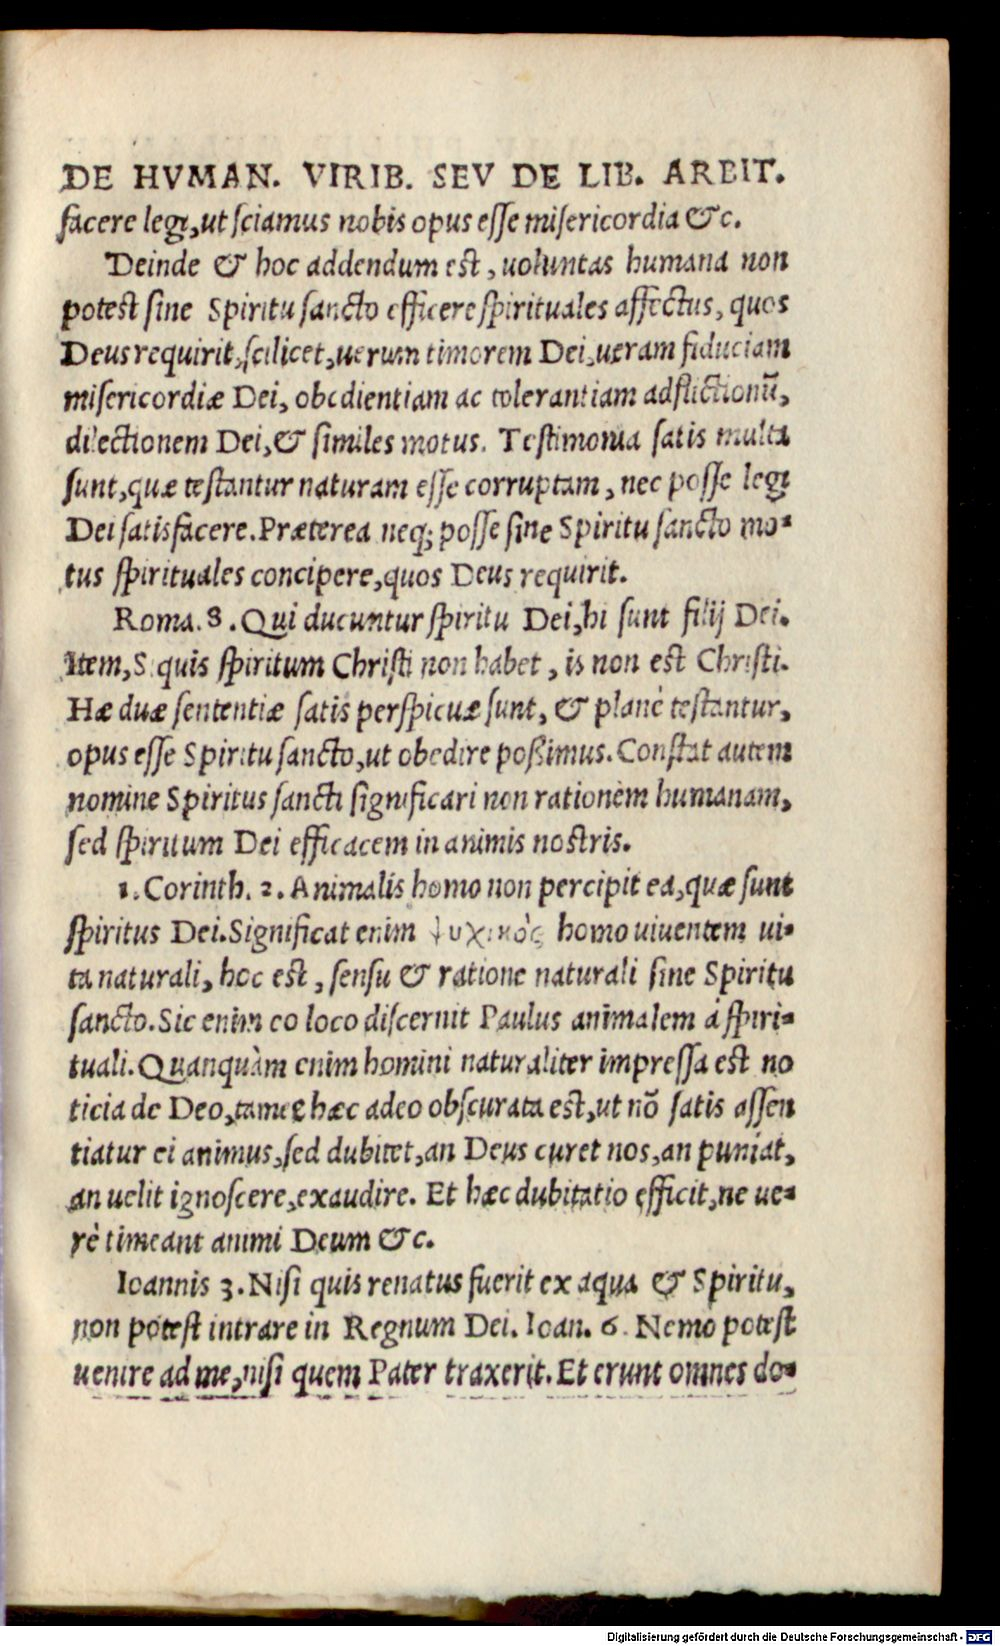 DE HVMAN. VIRIB. SEV DE LIB. ARBIT.
facere legi, ut sciamus nobis opus esse misericordia &c.
Deinde & hoc addendum est, uoluntas humana non
potest sine Spiritu sancto efficere spirituales affectus, quos
Deus requirit, scilicet, uerum timorem Dei, ueram fiduciam
misericordiæ Dei, obedientiam ac tolerantiam adflictionū,
dilectionem Dei, & similes motus. Testimonia satis multa
sunt, quæ testantur naturam esse corruptam, nec posse legi
Dei satisfacere. Præterea neq; posse sine Spiritu sancto mo-
tus spirituales concipere, quos Deus requirit.
Roma. 8. Qui ducuntur spiritu Dei, hi sunt filij Dei.
Item, Si quis spiritum Christi non habet, is non est Christi.
Hæ duæ sententiæ satis perspicuæ sunt, & planè testantur,
opus esse Spiritu sancto, ut obedire poßimus. Constat autem
nomine Spiritus sancti significari non rationem humanam,
sed spiritum Dei efficacem in animis nostris.
1. Corinth. 2. Animalis homo non percipit ea, quæ sunt
spiritus Dei. Significat enim ψυχικὸς homo uiuentem ui-
ta naturali, hoc est, sensu & ratione naturali sine Spiritu
sancto. Sic enim eo loco discernit Paulus animalem à spiri-
tuali. Quanquàm enim homini naturaliter impressa est no
ticia de Deo, tamen hæc adeo obscurata est, ut nō satis assen
tiatur ei animus, sed dubitet, an Deus curet nos, an puniat,
an uelit ignoscere, exaudire. Et hæc dubitatio efficit, ne ue-
rè timeant animi Deum &c.
Ioannis 3. Nisi quis renatus fuerit ex aqua & Spiritu,
non potest intrare in Regnum Dei. Ioan. 6. Nemo potest
uenire ad me, nisi quem Pater traxerit. Et erunt omnes do-
Digitalisierung gefördert durch die Deutsche Forschungsgemeinschaft - DFG